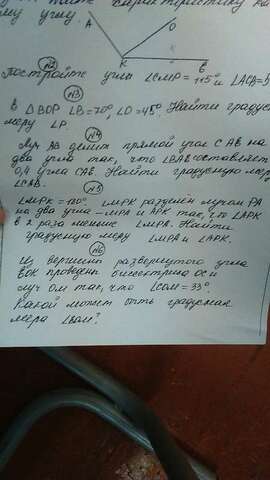 му углу.
A
D
K
B
№2
Постройте углы ∠CMP = 115° и ∠ACB = 5
№3
В △BDP ∠B = 70°, ∠D = 45°. Найти градусн
меру ∠P.
№4
Луч AB делит прямой угол CAB на
два угла так, что ∠BAB составляет
0,4 угла CAB. Найти градусную меру
∠CAB.
№5
∠MPK = 120°. ∠MPK разделён лучом PA
на два угла – MPA и APK так, что ∠APK
в 2 раза меньше ∠MPA. Найти
градусную меру ∠MPA и ∠APK.
№6
Из вершины развернутого угла
BOK проведены биссектриса OC и
луч OM так, что ∠COM = 33°.
Какой может быть градусная
мера ∠BOM?